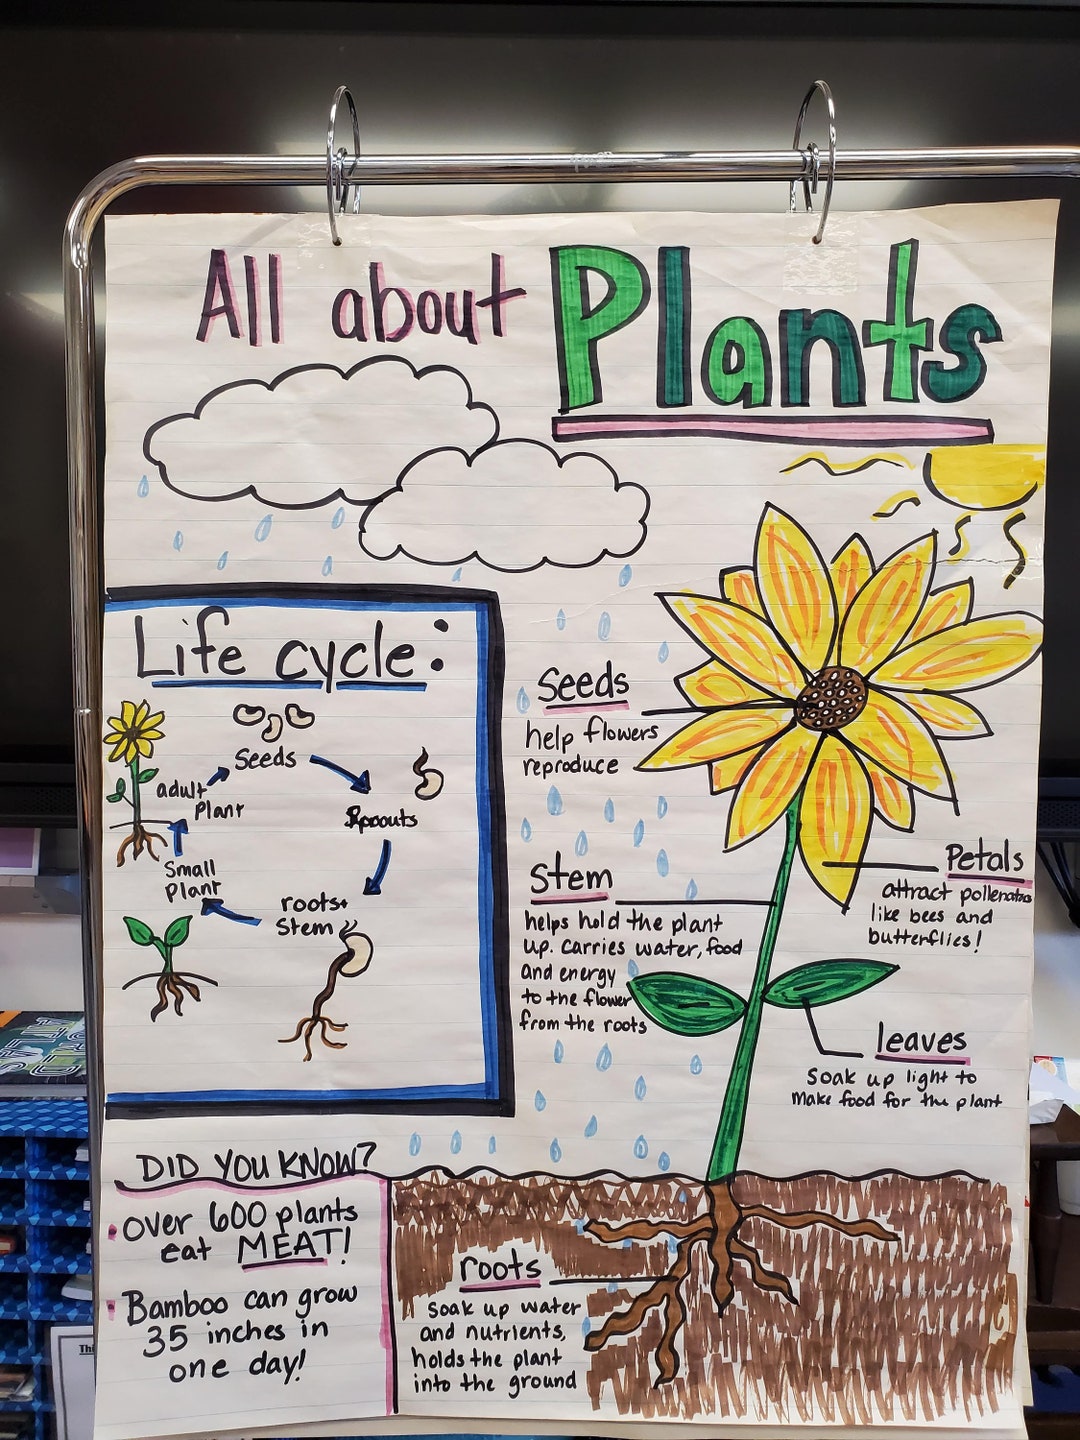 All about Plants
Life cycle:
Seeds
Sprouts
roots+
Stem
Small
Plant
adult
Plant
Seeds
help flowers
reproduce
Stem
helps hold the plant
up. Carries water, food
and energy
to the flower
from the roots
Petals
attract pollenators
like bees and
butterflies!
leaves
Soak up light to
Make food for the plant
DID YOU KNOW?
• Over 600 plants
eat MEAT!
• Bamboo can grow
35 inches in
one day!
roots
Soak up water
and nutrients,
holds the plant
into the ground